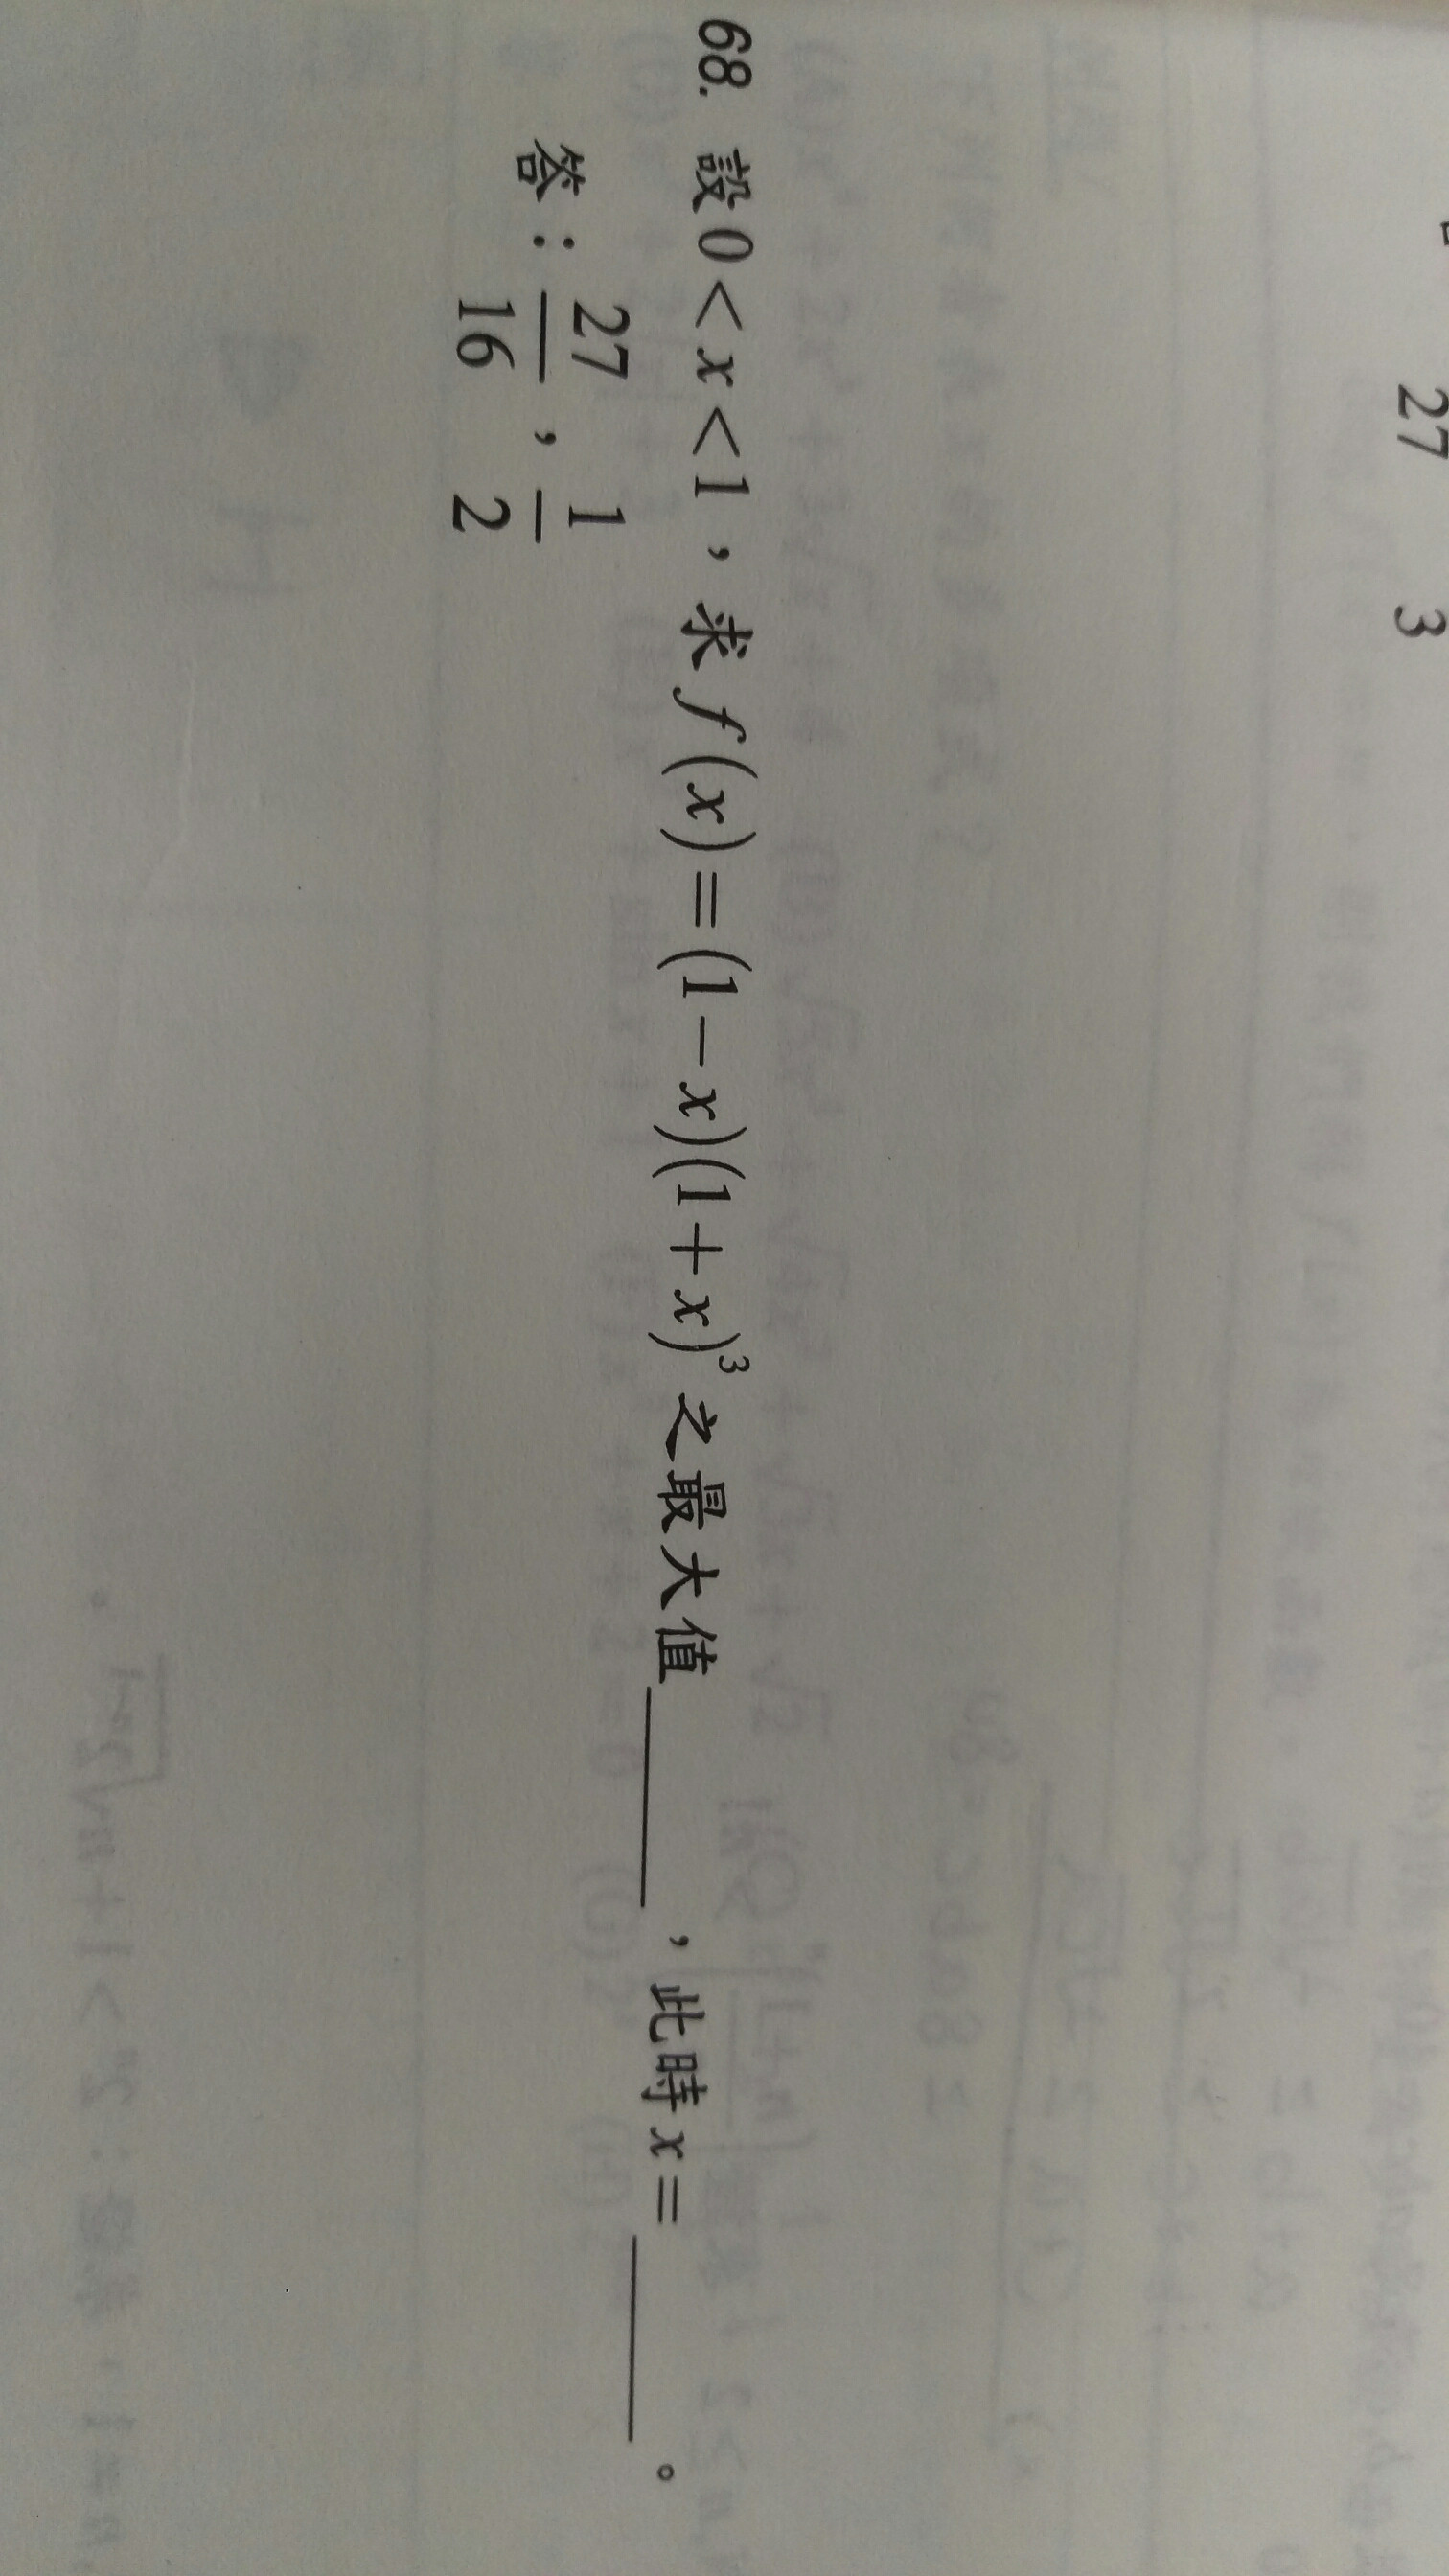 27 3
68. 設 0 < x < 1，求 f(x) = (1 − x)(1 + x)³ 之最大值______，此時 x = ______。
答：27/16，1/2